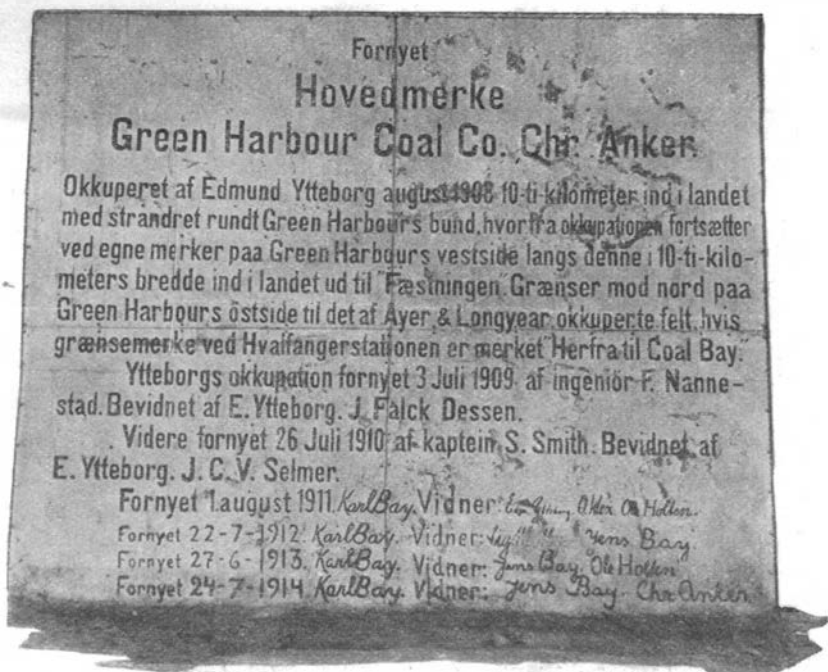 Fornyet
Hovedmerke
Green Harbour Coal Co. Chr. Anker.
Okkuperet af Edmund Ytteborg august 1908 10-ti-kilometer ind i landet
med strandret rundt Green Harbours bund, hvorfra okkupationen fortsætter
ved egne merker paa Green Harbours vestside langs denne i 10-ti-kilo-
meters bredde ind i landet ud til "Fæstningen". Grænser mod nord paa
Green Harbours östside til det af Ayer & Longyear okkuperte felt, hvis
grænsemerke ved Hvalfangerstationen er merket "Herfra til Coal Bay."
Ytteborgs okkupation fornyet 3 Juli 1909 af ingeniör F. Nanne-
stad. Bevidnet af E. Ytteborg. J. Falck Dessen.
Videre fornyet 26 Juli 1910 af kaptein S. Smith. Bevidnet af
E. Ytteborg. J. C. V. Selmer.
Fornyet 1. august 1911. Karl Bay. Vidner: Ole Holten.
Fornyet 22-7-1912. Karl Bay. Vidner: Jens Bay
Fornyet 27-6-1913. Karl Bay. Vidner: Jens Bay. Ole Holten
Fornyet 24-7-1914. Karl Bay. Vidner: Jens Bay. Chr Anker